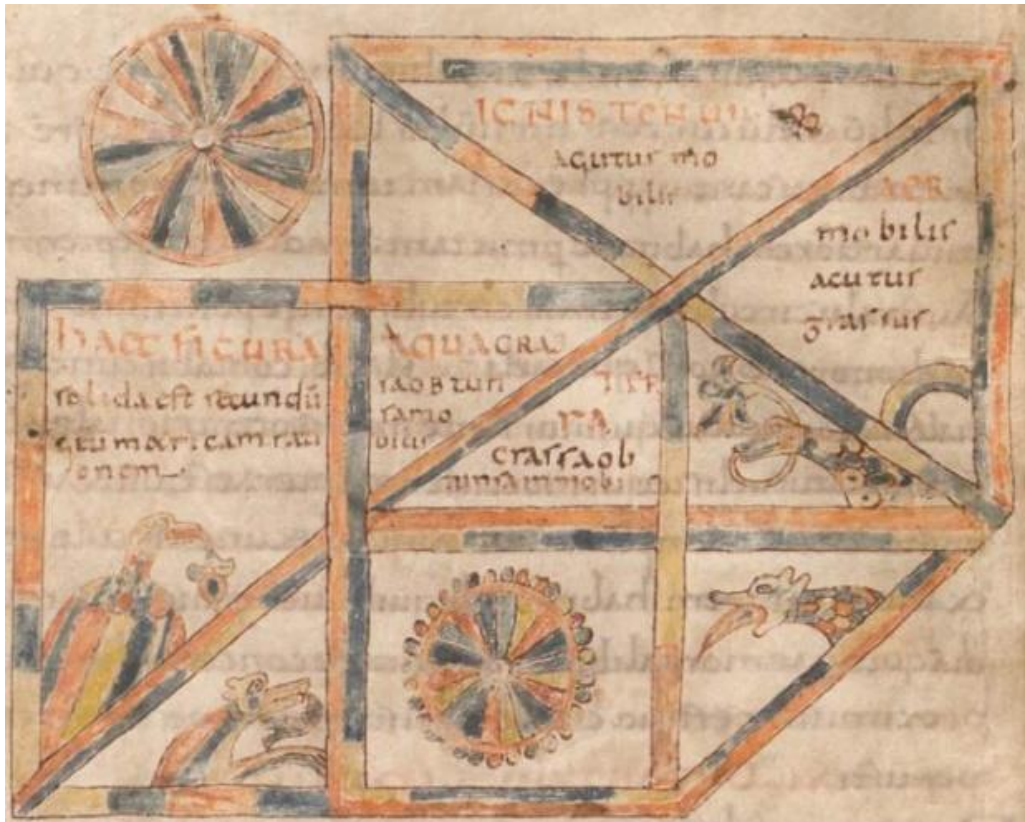 IGNIS TENUIS
acutus mo
bilis
AER
mobilis
acutus
grassus
HAEC FIGURA
solida est secundū
geumatricam rati
onem
AQUA CRA
sa obtun
sa mo
bilis
TER
RA
crassa ob
tunsa inmobi